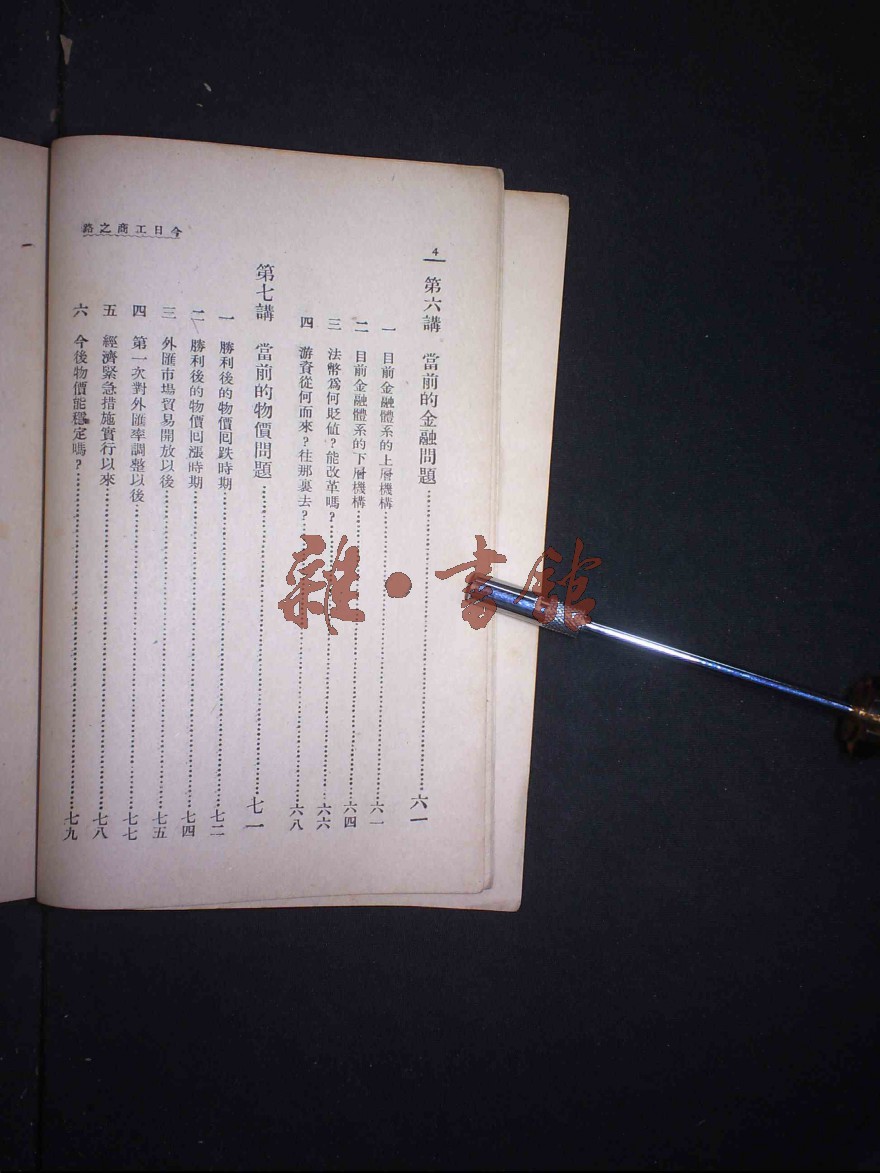 今日工商之路
4
第六講 當前的金融問題……六一
一 目前金融體系的上層機構……六一
二 目前金融體系的下層機構……六四
三 法幣爲何貶值？能改革嗎？……六六
四 游資從何而來？往那裏去？……六八
第七講 當前的物價問題……七一
一 勝利後的物價囘跌時期……七二
二 勝利後的物價囘漲時期……七四
三 外匯市場貿易開放以後……七五
四 第一次對外匯率調整以後……七七
五 經濟緊急措施實行以來……七八
六 今後物價能穩定嗎？……七九
雜·書館